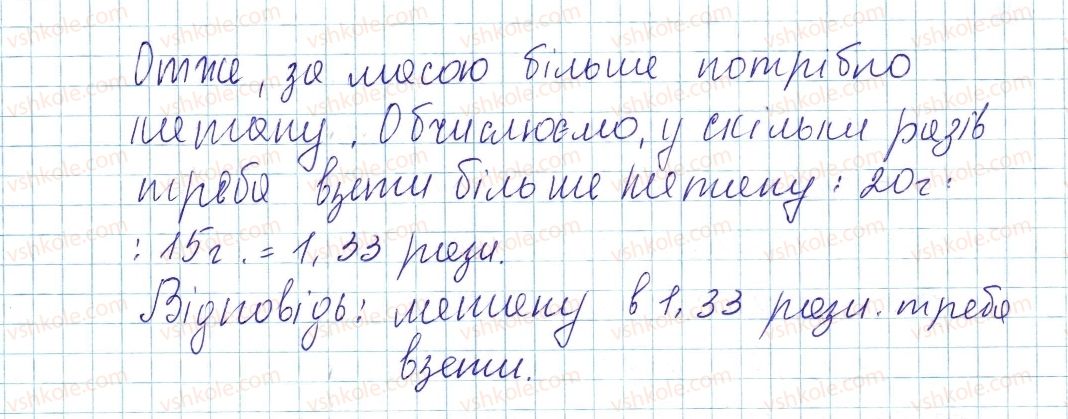 Отже, за масою більше потрібно
метану. Обчислюємо, у скільки разів
треба взяти більше метану: 20г:
: 15г. = 1,33 рази.
Відповідь: метану в 1,33 рази. треба
взяти.